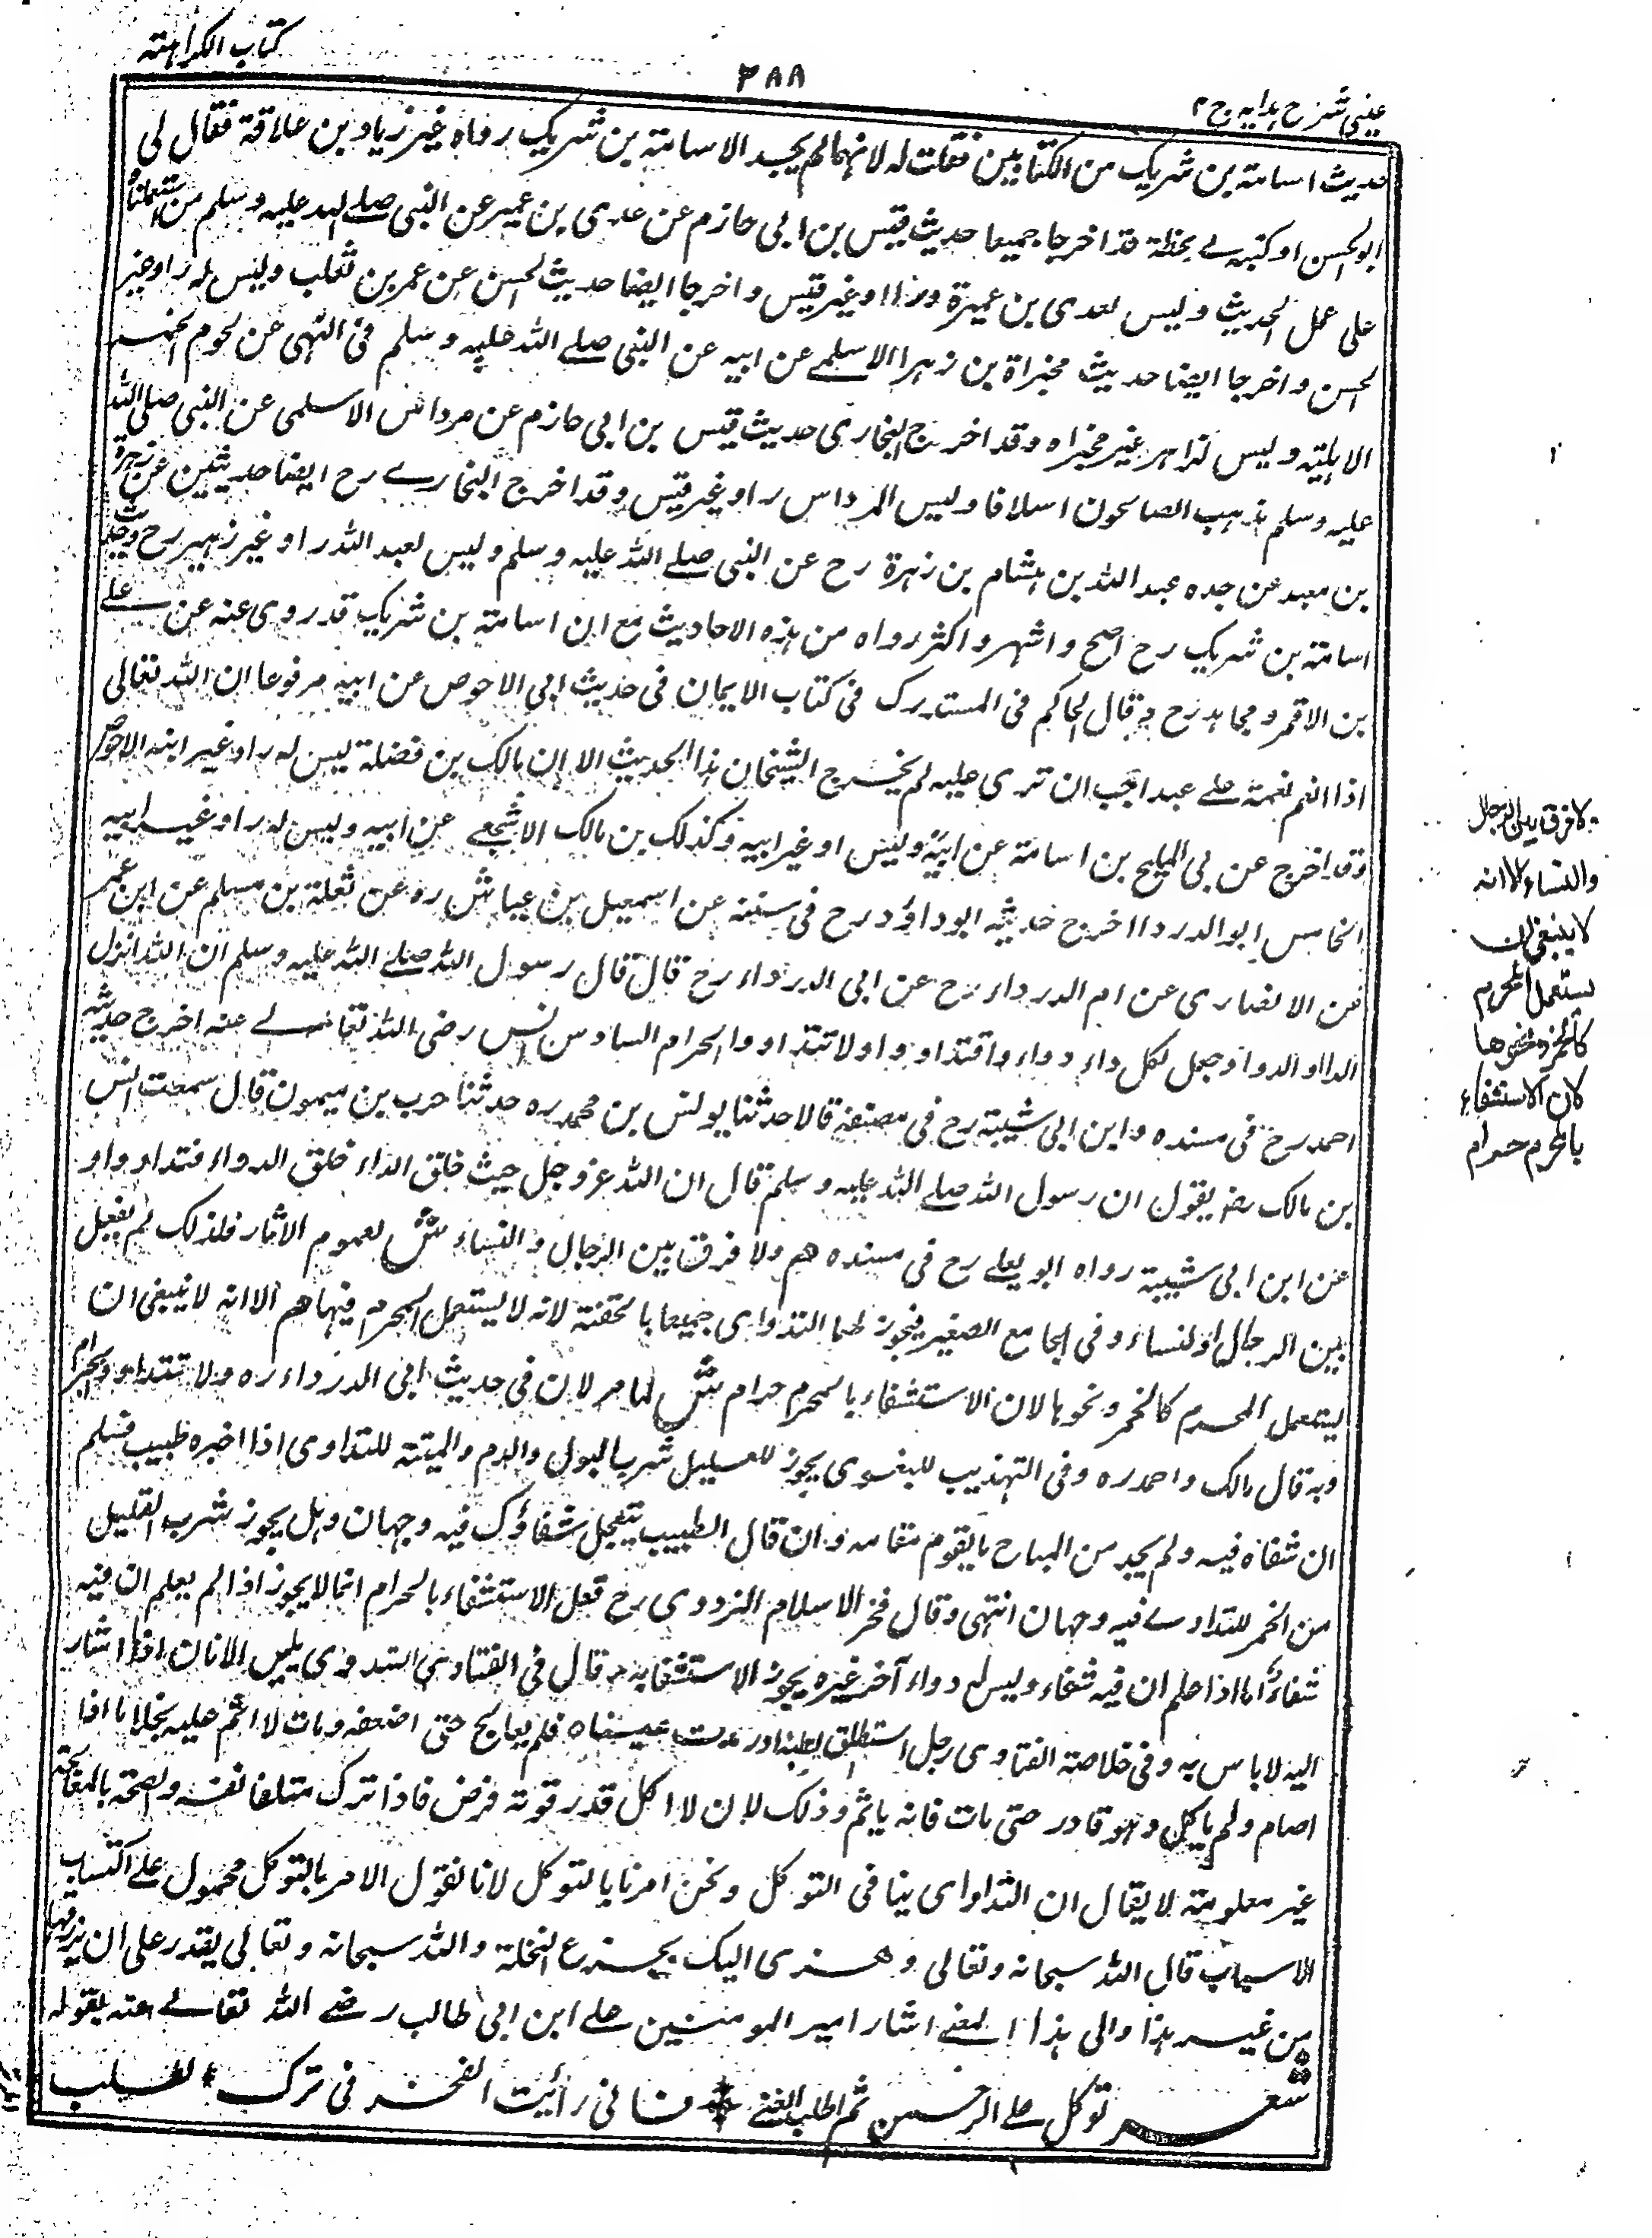 كتاب الكراهته
٣٨٨
عينى شرح هدايه ج ٣
حديث اسامته بن شريك من الكتابين فقلت له لانهما لم يجد الاسامته بن شريك رواه غير زياد بن علاقة فقال لى
ابو الحسن اوكتبه لے بخطه قد اخرجا جميعا حديث قيس بن ابى حازم عن عدى بن عمير عن النبى صلے الله عليه وسلم من استعملناه
على عمل الحديث وليس لعدى بن عميرة وزا اوغير قيس واخرجا ايضا حديث الحسن عن عمر بن تغلب وليس له راوغير
الحسن واخرجا ايضا حديث مجزاة بن زهرا الاسلمے عن ابيه عن النبى صلے الله عليه وسلم فى النهى عن لحوم الحمر
الاہليته وليس لزاهر غير مجزاه وقد اخرج البخارى حديث قيس بن ابى حازم عن مرداس الاسلمى عن النبى صلى الله
عليه وسلم يذهب الصالحون اسلافا وليس المرداس راو غير قيس وقد اخرج البخارے رح ايضا حديثين عن زهرة
بن معبد عن جده عبد الله بن هشام بن زهرة رح عن النبى صلے الله عليه وسلم وليس لعبد الله راو غير زهير رح وحديث
اسامته بن شريك رح اصح واشهر واكثر رواه من هذه الاحاديث مع ان اسامته بن شريك قد روى عنه عن علے
بن الاقمر ومجاهد رح وقال الحاكم فى المستدرك فى كتاب الايمان فى حديث ابى الاحوص عن ابيه مرفوعا ان الله تعالى
اذا انعم نعمة علے عبد احب ان ترى عليه لم يخرج الشيخان هذا الحديث الا ان مالك بن فضلة ليس له راو غير ابنه الاحوص
وقد اخرج عن بى المليح بن اسامته عن ابيه وليس او غير ابيه وكذلك بن مالك الاشجعے عن ابيه وليس له راو غير ابيه
الخامس ابو الدردا اخرج حديثه ابو داؤد رح فى سننه عن اسمعيل بن عياش ره عن ثعلبة بن مسلم عن ابن عمر
عن الانصارى عن ام الدرداء رح عن ابى الدرداء رح قال قال رسول الله صلے الله عليه وسلم ان الله انزل
الداا والدوا وجعل لكل داء دواء واقتداو واولاتتداووا الحرام السادس انس رضى الله تعالے عنه اخرج حديثه
احمد رح فى مسنده وابن ابى شيبة رح فى مصنفه قالا حدثنا يونس بن محمد ره حدثنا حرب بن ميمون قال سمعت انس
بن مالك رضه يقول ان رسول الله صلے الله عليه وسلم قال ان الله عزوجل حيث خلق الداء خلق الدواء فتداو واو
عن ابن ابى شيبة رواه ابو يعلے رح فى مسنده هم ولا فرق بين الرجال والنساء ش لعموم الاثار فلذلك لم يفصل
بين الرجال اولنساء وفى الجامع الصغير فيجوز لهما التداوى جميعا بالحقنة لانه لا يستعمل المحرم فيها هم الا انه لا ينبغى ان
يستعمل المحرم كالخمر ونحوها لان الاستشفاء بالمحرم حرام ش لما مر لان فى حديث ابى الدرداء ره ولا تتداووا بحرام
وبه قال مالك واحمد ره وفى التهذيب للبغوى يجوز للعليل شرب البول والدم والميتة للتداوى اذا اخبره طبيب مسلم
ان شفاه فيه ولم يجد من المباح ما يقوم مقامه وان قال الطبيب يتعجل شفاؤك فيه وجهان وهل يجوز شرب القليل
من الخمر للتداوے فيه وجهان انتهى وقال فخر الاسلام البزدوى رح فعل الاستشفاء بالحرام انما لا يجوز اذا لم يعلم ان فيه
شفاءً اما اذا علم ان فيه شفاء وليس له دواء آخر غيره يجوز الاستشفا به وقال فى الفتاوى السدوى يلبس الاتان اذا اشار
اليه لاباس به وفى خلاصة الفتاوى رجل استطلق بطنه اورمدت عيناه فلم يعالج حتى اضعفه ومات لا اثم عليه بخلاف ما اذا
اصام ولم ياكل وهو قادر حتى مات فانه ياثم وذلك لان لا اكل قدر قوته فرض فاذا ترك متلفا نفسه والصحة بالمعالجة
غير معلومته لا يقال ان التداوى ينافى التوكل ونحن امرنا بالتوكل لانا نقول الامر بالتوكل محمول علے اكتساب
الاسباب قال الله سبحانه وتعالى وهزى اليك بجذع النخلة والله سبحانه وتعالى يقدر على ان يرزقها
من غير هذا والى هذا المعنے اشار امير المومنين علے ابن ابى طالب رضے الله تعالے عنه بقوله
شعر توكل علے الرحمن ثم اطلب الغنے ٭ فانى رأيت الفخر فى ترك الطلب
لا فرق بين الرجال
والنساء الا انه
لا ينبغى ان
يستعمل المحرم
كالخمر ونحوها
لان الاستشفاء
بالمحرم حرام